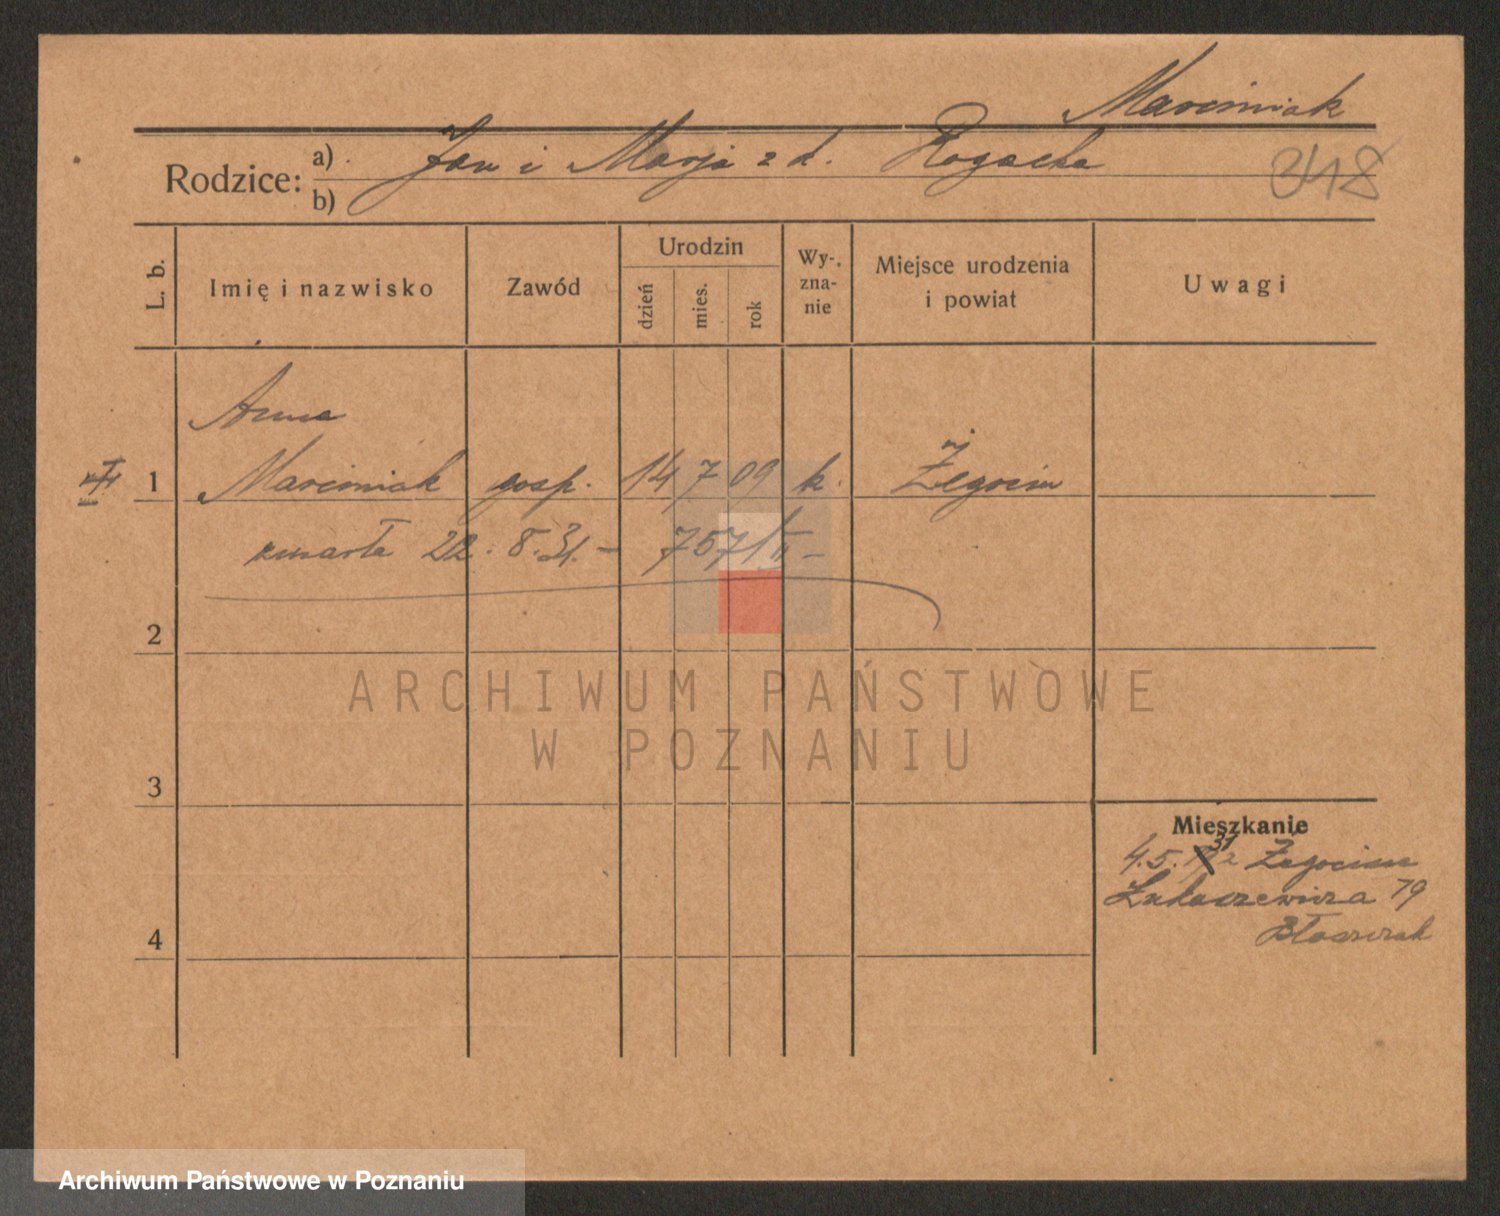 Marciniak
Rodzice: a) Jan i Marja z d. Rogacka
b)
348
L. b.
Imię i nazwisko
Zawód
Urodzin
dzień
mies.
rok
Wy-
zna-
nie
Miejsce urodzenia
i powiat
Uwagi
Anna
1 Marciniak gosp. 14 7 09 k. Żegocin
zmarła 22. 8. 31. – 7571/II –
2
ARCHIWUM PAŃSTWOWE
W POZNANIU
3
Mieszkanie
4. 5. 31 Żegocina
Łukaszewicza 79
4
Archiwum Państwowe w Poznaniu